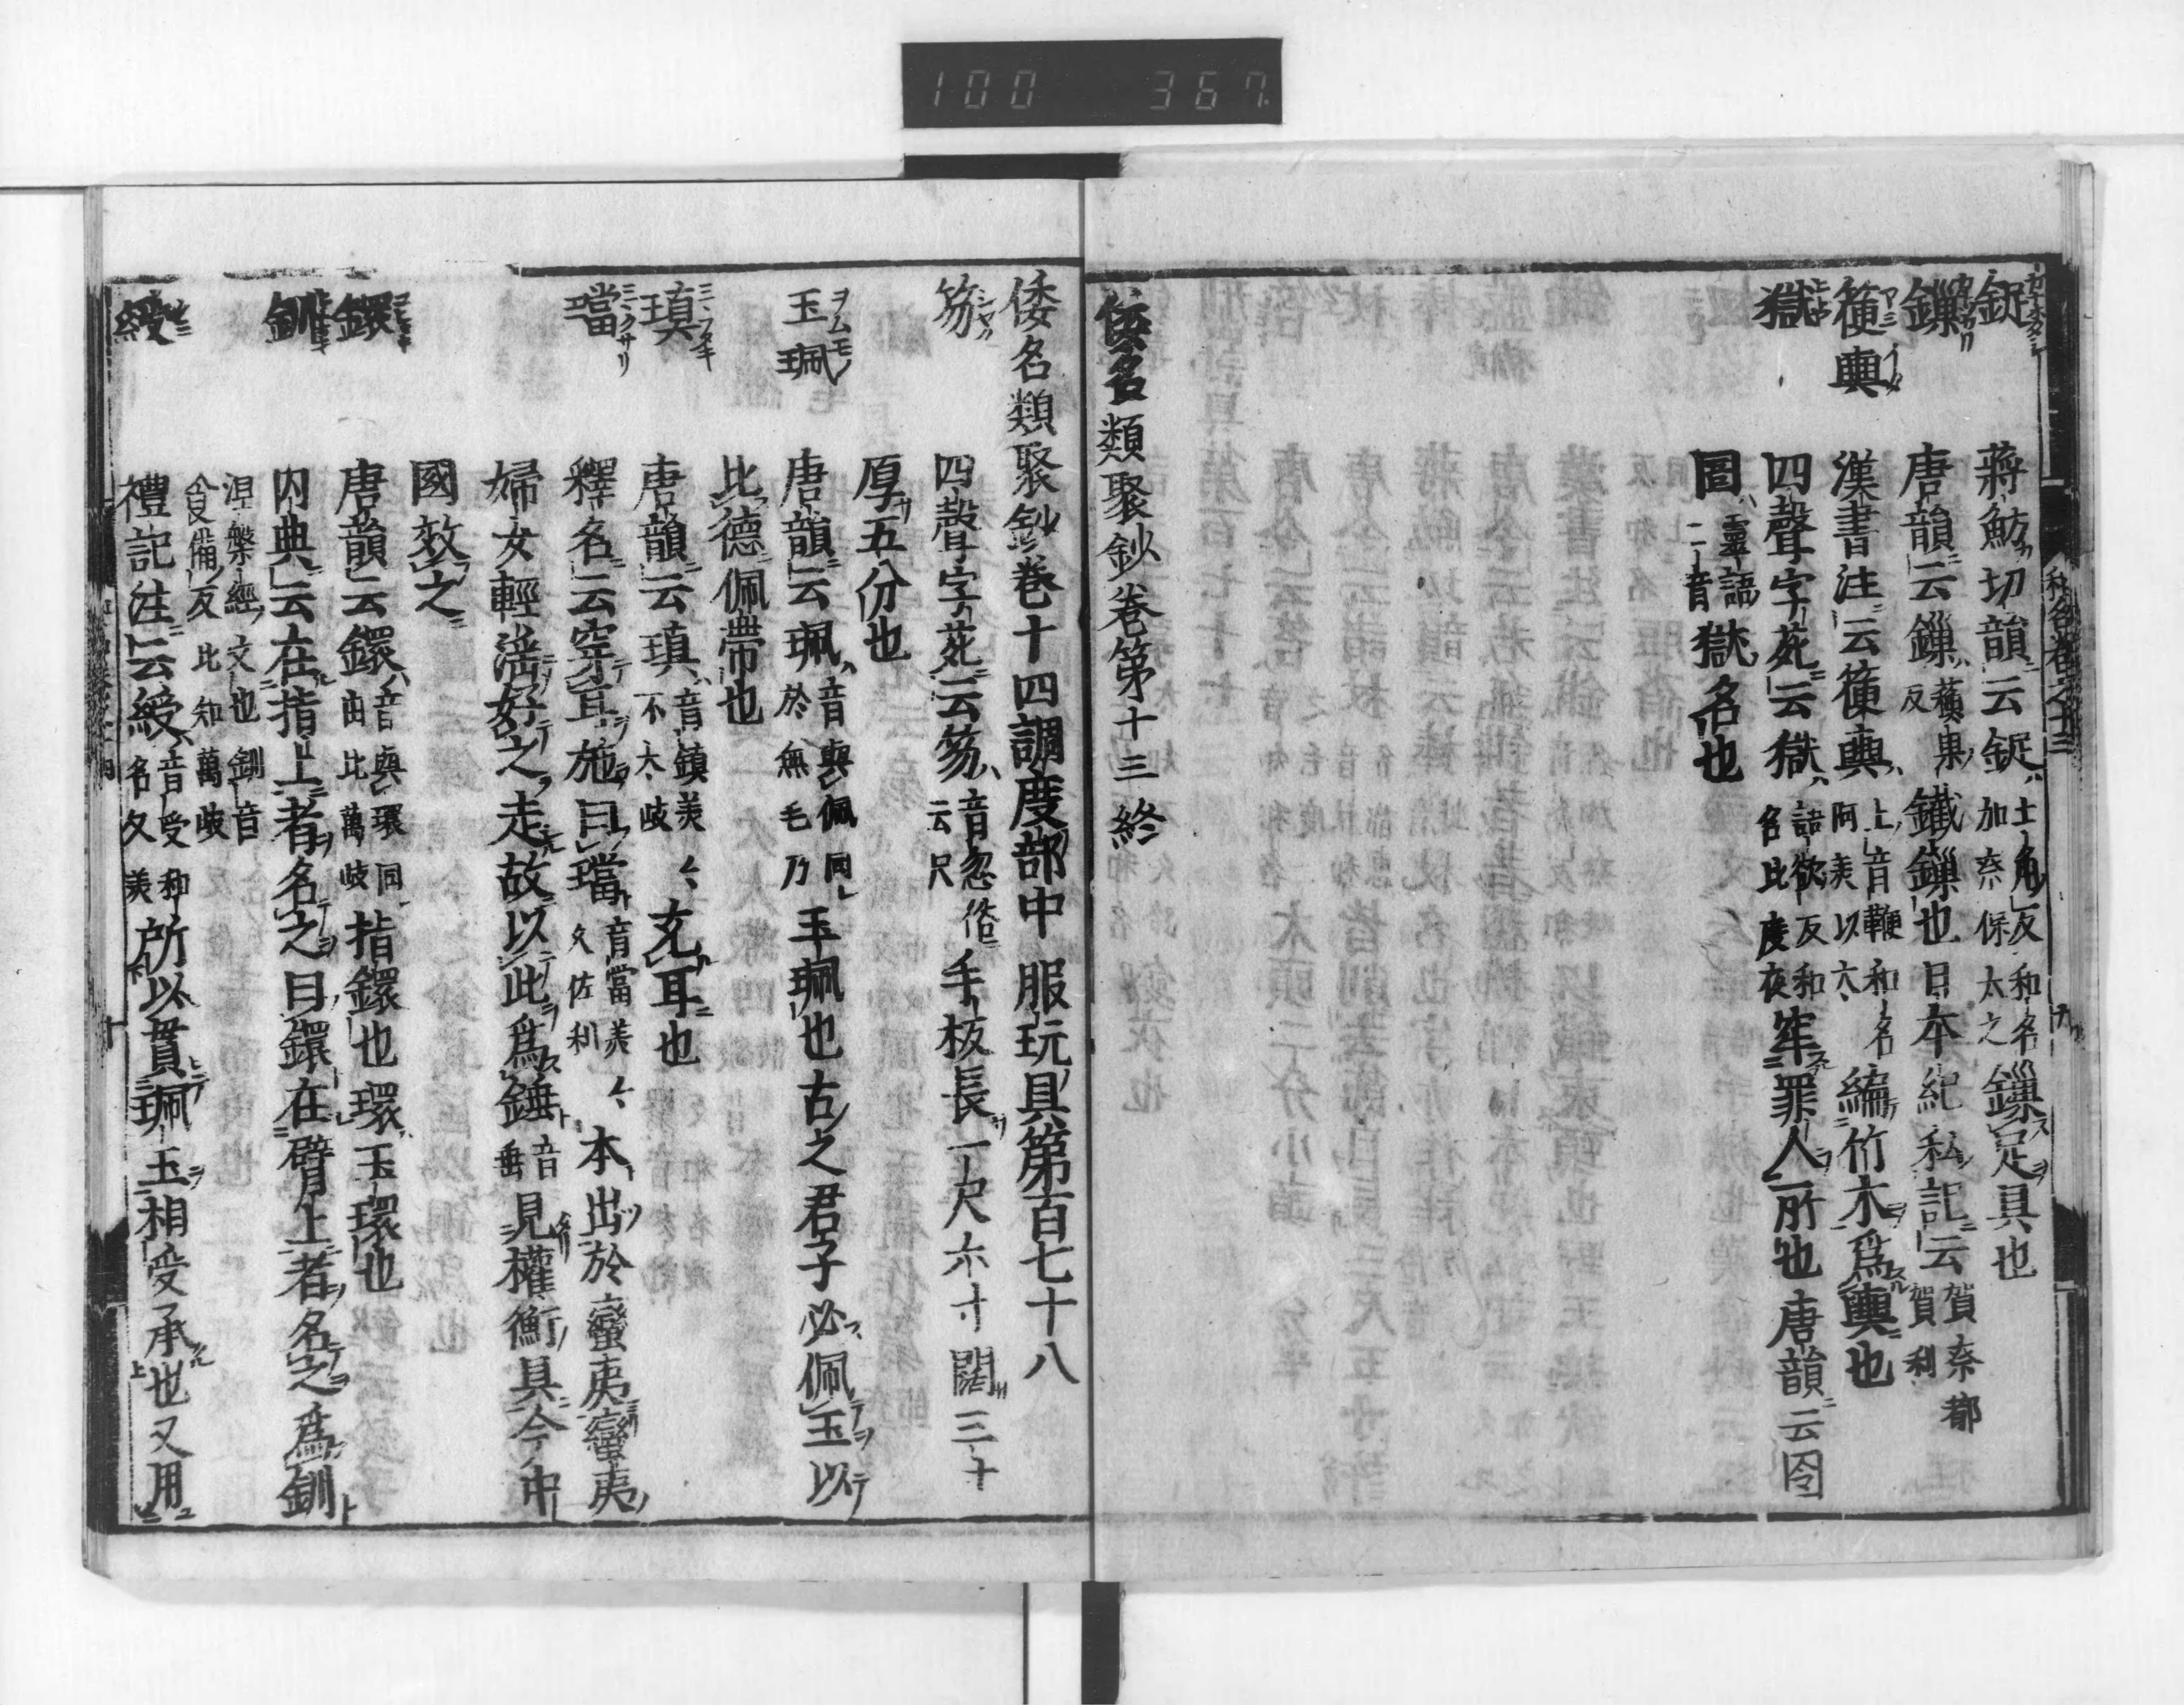 100 367
鋜 蔣魴切韻云鋜 士角反和名加奈保太之 鏁足具也
鏁 唐韻云鏁 蘓果反 鐵鏁也日本紀私記云 賀奈都賀利
箯輿 漢書注云箯輿 上音鞭和名阿美以太 編竹木爲輿也
獄 四聲字苑云獄 語欲反和名比度夜 牢罪人所也唐韻云囹
圄 靈語二音 獄名也
倭名類聚鈔巻第十三終
倭名類聚鈔巻十四調度部中 服玩具第百七十八
笏 四聲字苑云笏 音忽俗云尺 手板長一尺六寸闊三寸
厚五分也
玉珮 唐韻云珮 音與佩同於無毛乃 玉珮也古之君子必佩玉以
比德佩帶也
瑱 唐韻云瑱 音鎮美々不太歧 充耳也
璫 釋名云穿耳施曰璫 音當美々久佐利 本出於蠻夷蠻夷
婦女輕淫好之走故以此爲錘 音垂 見權衡具今中
國效之
鐶 唐韻云鐶 音與環同由比萬歧 指鐶也環玉環也
釧 内典云在指上者名之曰鐶在臂上者名之爲釧
涅槃經文也釧音食倫反比知萬歧
綬 禮記注云綬 音受和名久美 所以貫珮玉相受承也又用